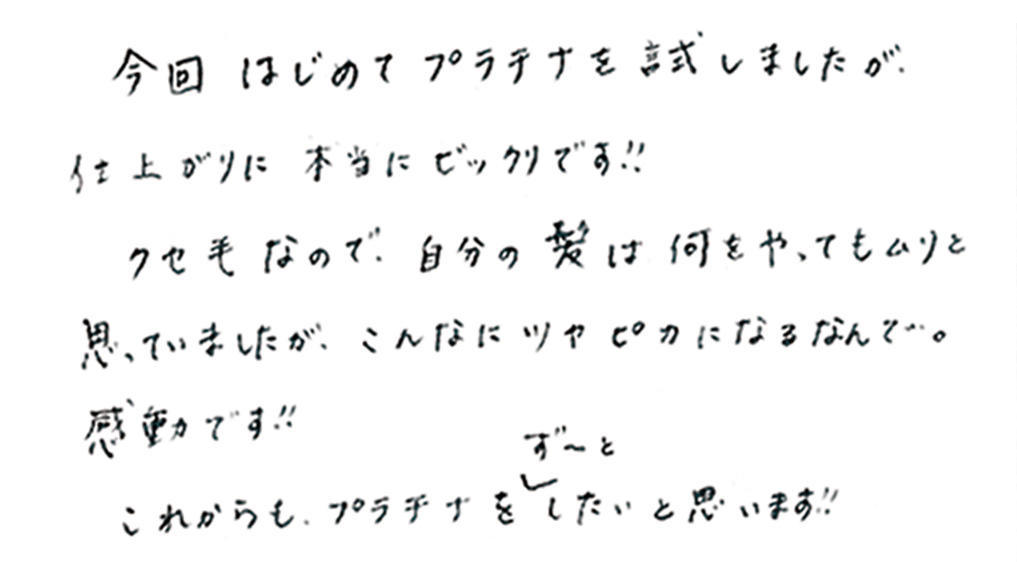 今回 はじめて プラチナを試しましたが、
仕上がりに 本当に ビックリです!!
クセ毛なので、自分の髪は何をやってもムリと
思っていましたが、こんなにツヤピカになるなんて…。
感動です!!
ず〜と
これからも、プラチナをしたいと思います!!